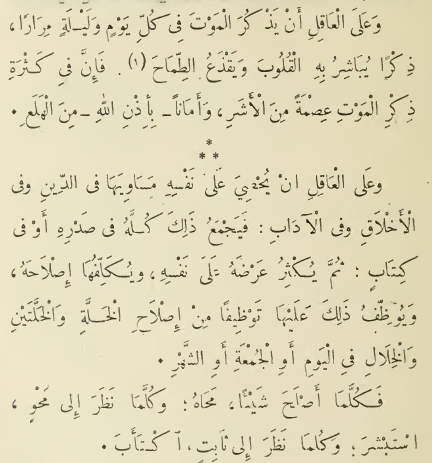 وَعَلَى الْعَاقِلِ أَنْ يَذْكُرَ الْمَوْتَ فِى كُلِّ يَوْمٍ وَلَيْلَةٍ مِرَارًا،
ذِكْرًا يُبَاشِرُ بِهِ الْقُلُوبَ وَيَقْذَعُ الطِّمَاحَ (١) . فَإِنَّ فِى كَثْرَةِ
ذِكْرِ الْمَوْتِ عِصْمَةً مِنَ الْأَشَرِ، وَأَمَانًا ـ بِأِذْنِ اللهِ ـ مِنَ الْهَلَعِ .
*
* *
وَعَلَى الْعَاقِلِ انْ يُحْصِىَ عَلَى نَفْسِهِ مَسَاوِيَهَا فى الدِّينِ وفى
الْأَخْلَاقِ وفى الْآدَابِ : فَيَجْمَعُ ذَلِكَ كُلَّهُ فى صَدْرِهِ أَوْ فى
كِتَابٍ ؛ ثُمَّ يُكْثِرُ عَرْضَهُ عَلَى نَفْسِهِ، وَيُكَلِّفُهَا إِصْلَاحَهُ،
وَيُوَظِّفُ ذَلِكَ عَلَيْهَا تَوْظِيفًا مِنْ إِصْلَاحِ الْخَلَّةِ وَالْخَلَّتَيْنِ
وَالْخِلَالِ فِى الْيَوْمِ أَوِ الْجُمْعَةِ أَوِ الشَّهْرِ .
فَكُلَّمَا أَصْلَحَ شَيْئًا، مَحَاهُ ؛ وَكُلَّمَا نَظَرَ إِلى مَحْوٍ ،
اسْتَبْشَرَ ؛ وَكُلَّمَا نَظَرَ إِلى ثَابِتٍ، اكْتَأَبَ .